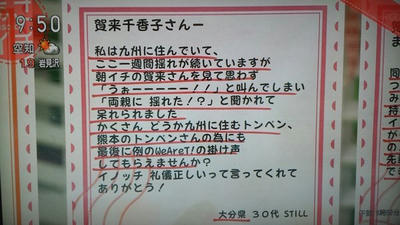 9:50
空知
19 岩見沢
賀来千香子さんー
私は九州に住んでいて、
ここ一週間揺れが続いていますが
朝イチの賀来さんを見て思わず
「うぉーーーーー!!」と叫んでしまい
「両親に 揺れた!?」と聞かれて
呆れられました
かくさん どうか九州に住むトンペン、
熊本のトンペンさんの為にも
最後に例のWeAreT!の掛け声
してもらえませんか?
イノッチ 礼儀正しいって言ってくれて
ありがとう!
大分県 30代 STILL